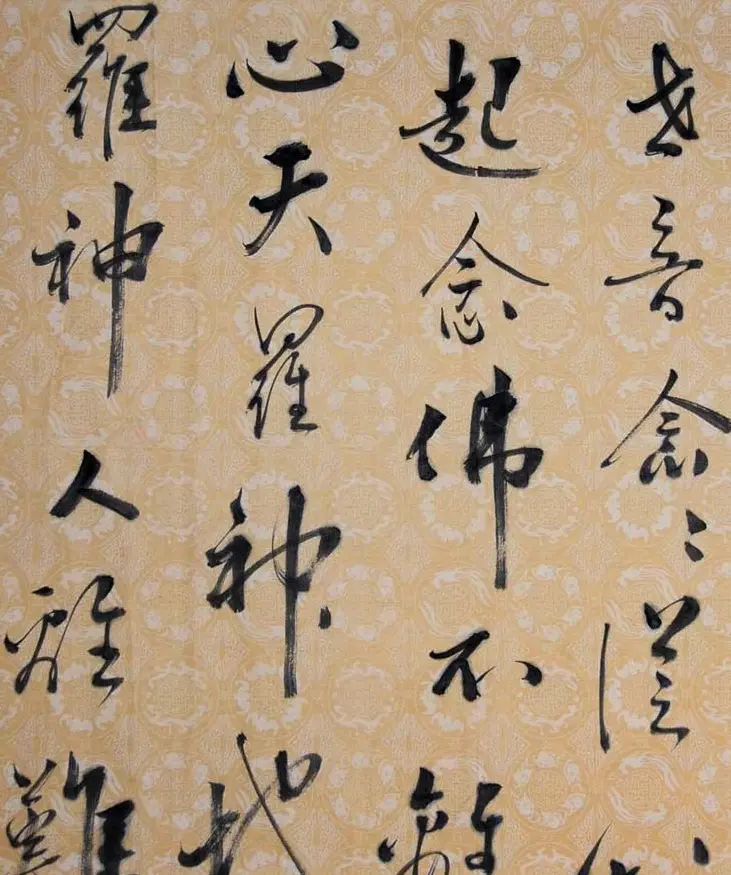 世音念念從心
起念佛不離
心天羅神地
羅神人離難